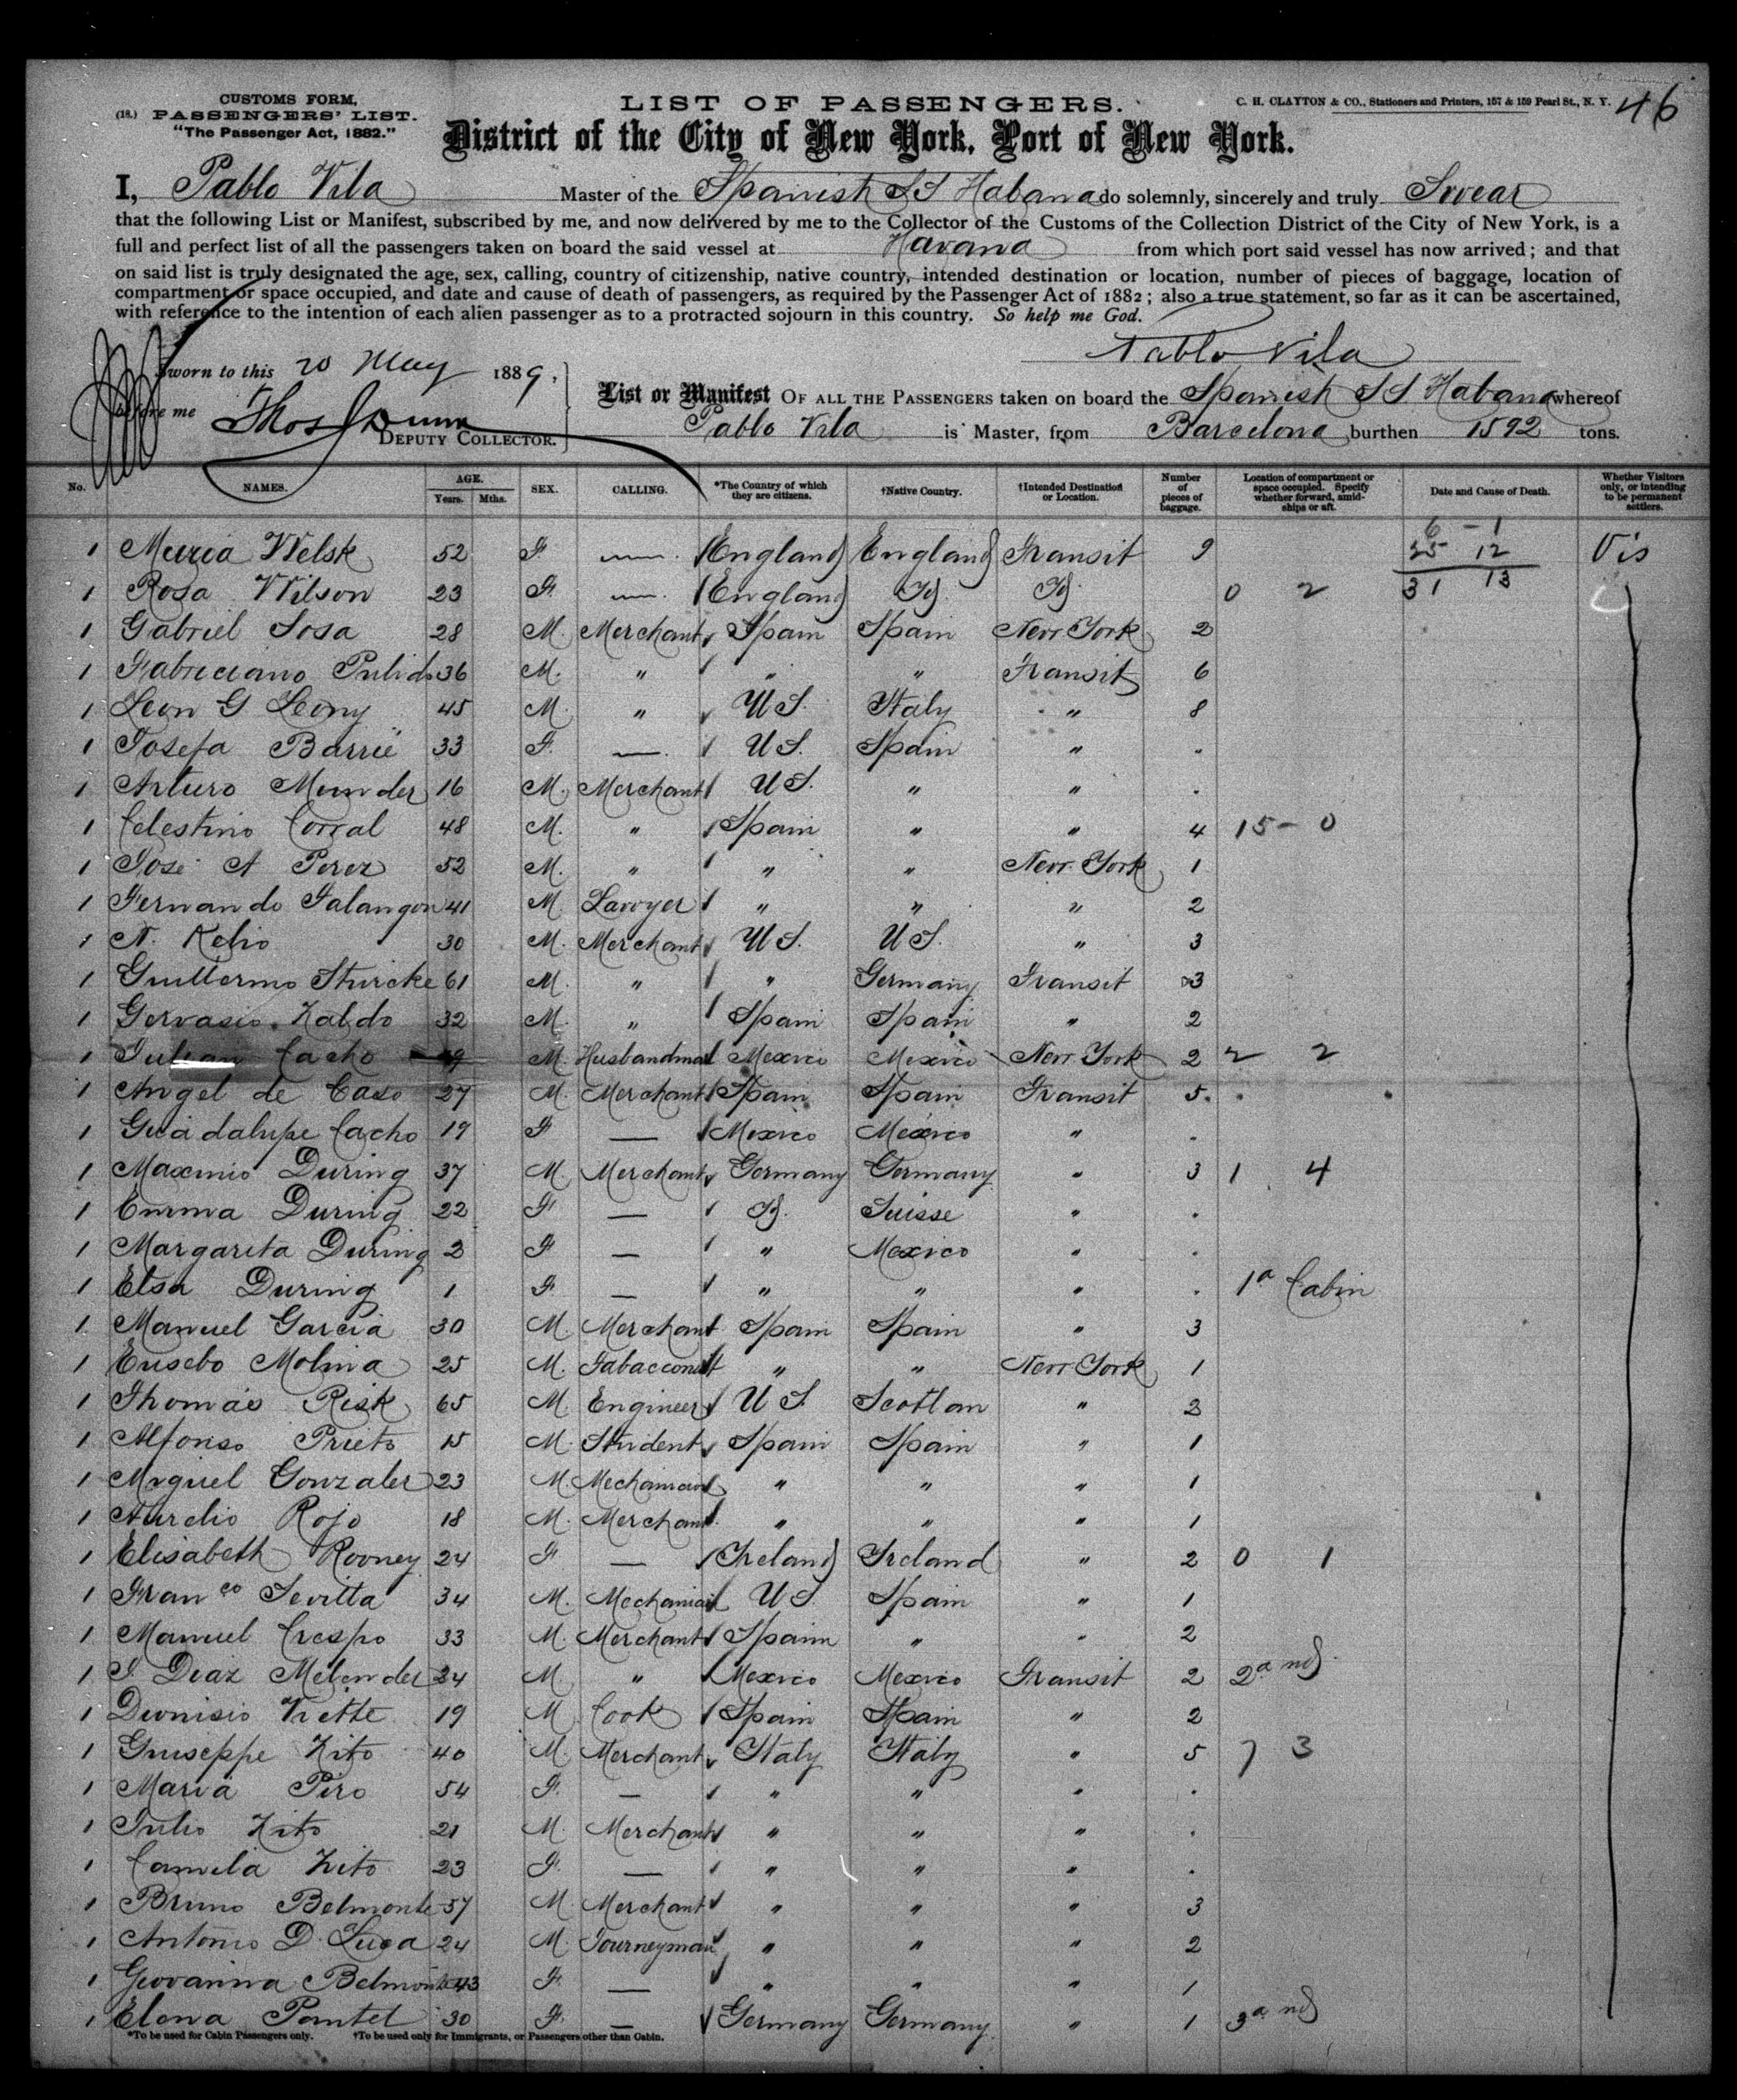 CUSTOMS FORM,
(18.) PASSENGERS' LIST.
"The Passenger Act, 1882."
LIST OF PASSENGERS.
C. H. CLAYTON & CO., Stationers and Printers, 157 & 159 Pearl St., N. Y. 46
District of the City of New York, Port of New York.
I, Pablo Vila Master of the Spanish SS Habana do solemnly, sincerely and truly Swear
that the following List or Manifest, subscribed by me, and now delivered by me to the Collector of the Customs of the Collection District of the City of New York, is a
full and perfect list of all the passengers taken on board the said vessel at Havana from which port said vessel has now arrived; and that
on said list is truly designated the age, sex, calling, country of citizenship, native country, intended destination or location, number of pieces of baggage, location of
compartment or space occupied, and date and cause of death of passengers, as required by the Passenger Act of 1882; also a true statement, so far as it can be ascertained,
with reference to the intention of each alien passenger as to a protracted sojourn in this country. So help me God.
Pablo Vila
Sworn to this 20 May 1889,
before me Thos J Dunn
DEPUTY COLLECTOR.
List or Manifest OF ALL THE PASSENGERS taken on board the Spanish SS Habana whereof
Pablo Vila is Master, from Barcelona burthen 1592 tons.
No. NAMES. AGE. Years. Mths. SEX. CALLING. *The Country of which they are citizens. †Native Country. †Intended Destination or Location. Number of pieces of baggage. Location of compartment or space occupied. Specify whether forward, amidships or aft. Date and Cause of Death. Whether Visitors only, or intending to be permanent settlers.
6 - 1
1 Maria Welsk 52 F. — England England Transit 9 25 12 Vis
1 Rosa Wilson 23 F. — England Id. Id. 0 2 31 13
1 Gabriel Sosa 28 M. Merchant Spain Spain New York 2
1 Fabriciano Pulido 36 M. " " " Transit 6
1 Leon G Leony 45 M. " U S. Italy " 8
1 Josefa Barrié 33 F. — U S. Spain " .
1 Arturo Munder 16 M. Merchant U S. " " .
1 Celestino Corral 48 M. " Spain " " 4 15 - 0
1 José A Perez 52 M. " " " New York 1
1 Fernando Falangon 41 M. Lawyer " " " 2
1 N. Kelio 30 M. Merchant U S. U S. " 3
1 Guillermo Sturcke 61 M. " " Germany Transit 3
1 Gervasio Zaldo 32 M. " Spain Spain " 2
1 Julian Cacho M. Husbandman Mexico Mexico New York 2 2 2
1 Angel de Caso 27 M. Merchant Spain Spain Transit 5
1 Guadalupe Cacho 19 F — Mexico Mexico " .
1 Maximo During 37 M. Merchant Germany Germany " 3 1 4
1 Emma During 22 F — Id. Suisse " .
1 Margarita During 2 F — " Mexico " .
1 Elsa During 1 F — " " " . 1a Cabin
1 Manuel Garcia 30 M. Merchant Spain Spain " 3
1 Eusebo Molina 25 M. Tabacconist " " New York 1
1 Thomas Risk 65 M. Engineer U S. Scotlan " 2
1 Alfonso Prieto 15 M. Student Spain Spain " 1
1 Miguel Gonzalez 23 M. " " " 1
1 Aurelio Rojo 18 M. Merchant " " " 1
1 Elisabeth Rooney 24 F — Ireland Ireland " 2 0 1
1 Franco Sevilla 34 M. Mechanian U S. Spain " 1
1 Manuel Crespo 33 M. Merchant Spain " " 2
1 J. Diaz Melendez 34 M. " Mexico Mexico Transit 2 2a nd
1 Dionisio Viette 19 M Cook Spain Spain " 2
1 Guiseppe Zito 40 M. Merchant Italy Italy " 5 7 3
1 Maria Piro 54 F. — " " " .
1 Julio Zito 21 M. Merchant " " " .
1 Camila Zito 23 F. — " " " .
1 Bruno Belmonte 57 M. Merchant " " " 3
1 Antonio D. Luca 24 M. Journeyman " " " 2
1 Geovanina Belmonte 43 F. — " " " 1
1 Elena Pantel 30 F. — Germany Germany " 1 3a nd
*To be used for Cabin Passengers only. †To be used only for Immigrants, or Passengers other than Cabin.